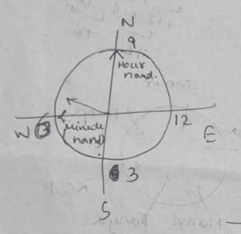 N
9
Hour
hand.
W
(minute
hand)
12
E
3
S